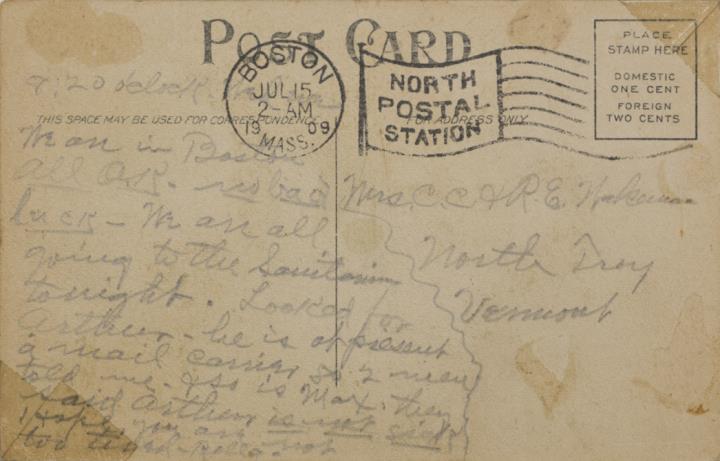 POST CARD
PLACE
STAMP HERE
DOMESTIC
ONE CENT
FOREIGN
TWO CENTS
BOSTON
JUL 15
2-AM
19 09
MASS.
NORTH
POSTAL
STATION
THIS SPACE MAY BE USED FOR CORRESPONDENCE
FOR ADDRESS ONLY
9:20 o'clock
We are in Boston
all O.K. - no bad
luck - We are all
going to the Sanitarium
tonight. Looked for
Arthur - he is at present
a mail carrier so 2 men
told me. is Max. they
said Arthur is not sick
Hope you are not
too tired - Bella.
Mrs. C. C. & R. E.
North Troy
Vermont